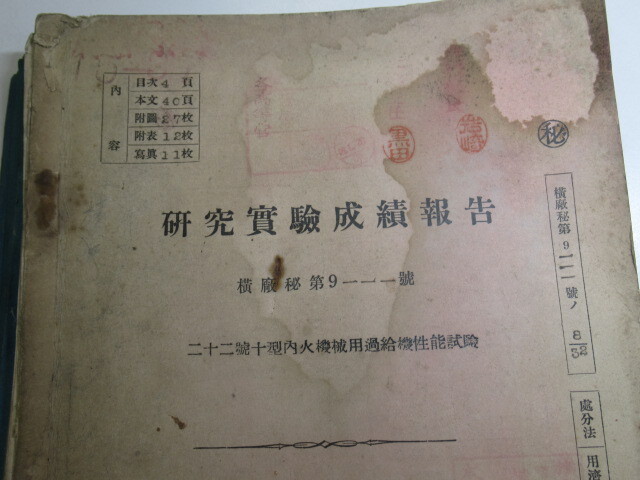 内容
目次 4 頁
本文 40 頁
附圖 27 枚
附表 12 枚
寫眞 11 枚
㊙
研究實驗成績報告
橫廠秘第9一一一號
二十二號十型內火機械用過給機性能試驗
橫廠秘第9一一一號ノ 8/32
處分法
用濟